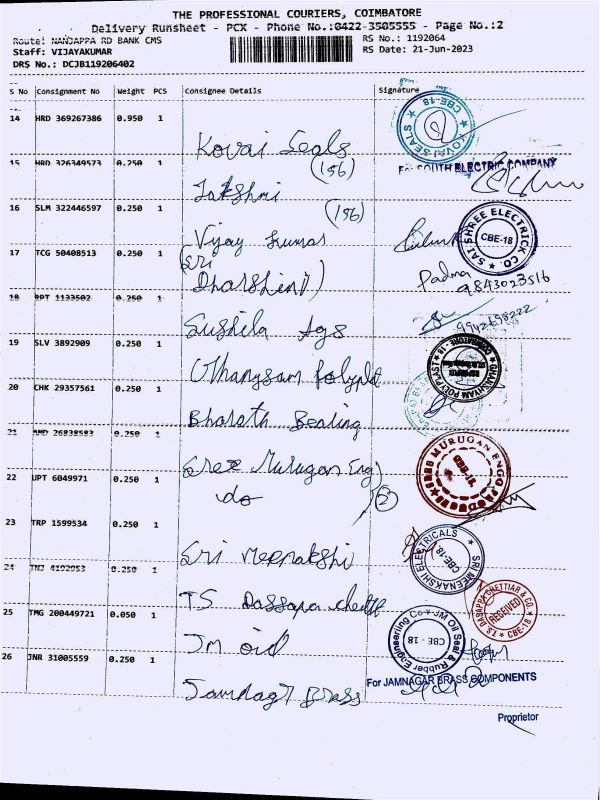 THE PROFESSIONAL COURIERS, COIMBATORE
Delivery Runsheet - PCX - Phone No.:0422-3505555 - Page No.:2
Route: NANJAPPA RD BANK CMS
RS No.: 1192064
Staff: VIJAYAKUMAR
RS Date: 21-Jun-2023
DRS No.: DCJB119206402
S No Consignment No Weight PCS Consignee Details Signature
14 HRD 369267386 0.950 1
Kovai Seals
KOVAI SEALS ★ CBE-18 ★
(156)
15 HRD 326349573 0.250 1
For SOUTH ELECTRIC COMPANY
Lakshmi
(156)
16 SLM 322446597 0.250 1
Vijay Kumar
SAI SHREE ELECTRICK CO. ★ CBE-18
17 TCG 50408513 0.250 1
(Sri
Dharshini)
Padma
9843023516
18 RPT 1133502 0.250 1
Sushila Ags
19 SLV 3892909 0.250 1
GHANSHYAM POLYPLAST
20 CHK 29357561 0.250 1
Bharath Bealing
21 AMD 26838583 0.250 1
Sree Murugan Eng
SREE MURUGAN ENGG CBE-18.
22 UPT 6049971 0.250 1
do (2)
23 TRP 1599534 0.250 1
Sri Meenakshi
SRI MEENAKSHI ELECTRICALS ★ CBE-18
24 TNJ 4192953 0.250 1
TS Dassapa chetti
S.T. DASAPPA CHETTIAR & CO. ★ CBE-18 RECEIVED
25 TMG 200449721 0.050 1
JM oil
JM Oil Seal & Rubber Engineering Co ★ CBE - 18
26 JNR 31005559 0.250 1
Jamnagar Brass
For JAMNAGAR BRASS COMPONENTS
Proprietor